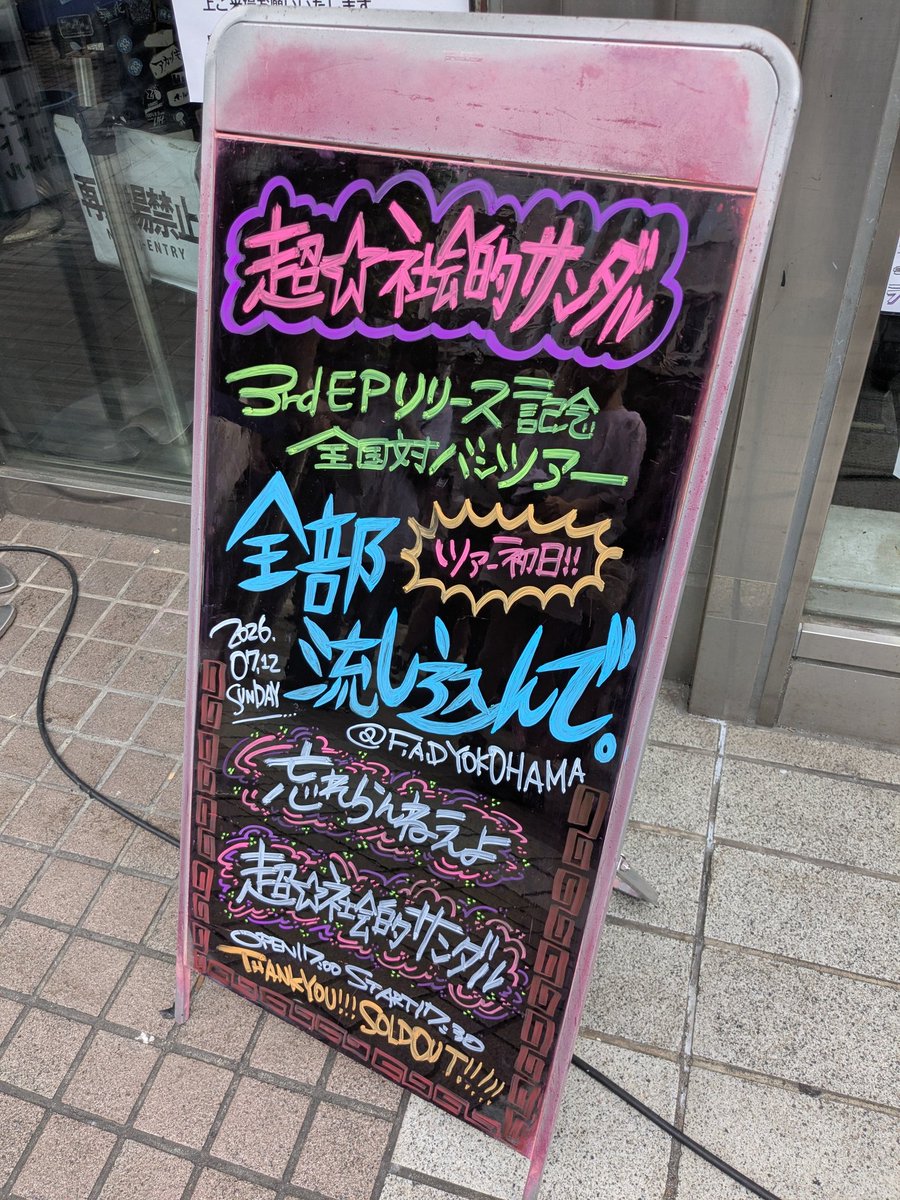 上ご来場お願いいたします
再 場禁止
-ENTRY
超☆社会的サンダル
3rd EPリリース記念
全国対バンツアー
全部
ツアー初日!!
流し込んで。
2026.
07.12
SUNDAY
@F.A.D YOKOHAMA
忘れらんねえよ
超☆社会的サンダル
OPEN 17:00 START 17:30
THANK YOU!!! SOLD OUT!!!!!